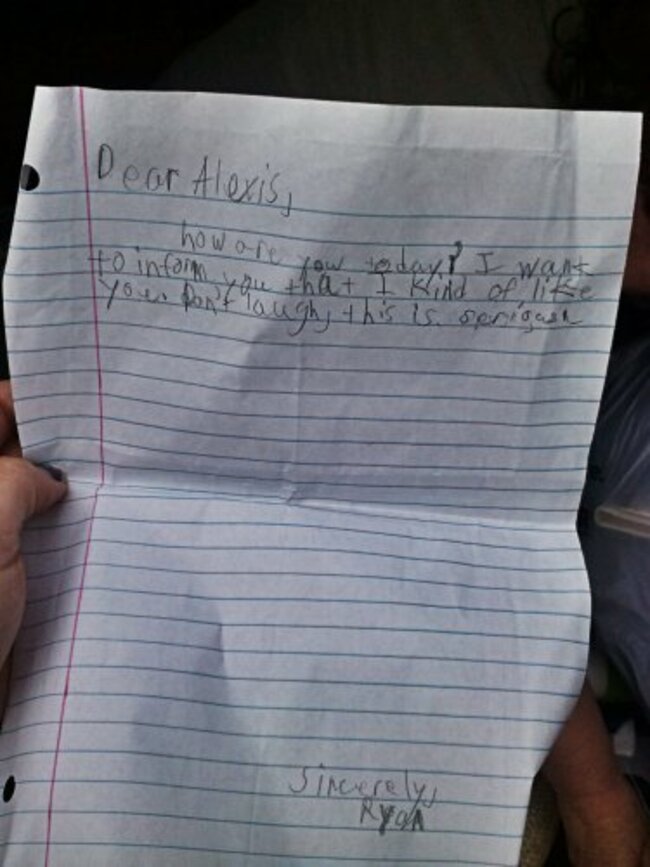 Dear Alexis,
how are you today? I want
to inform you that I kind of like
you. Don't laugh, this is serigush
Sincerely,
Ryan